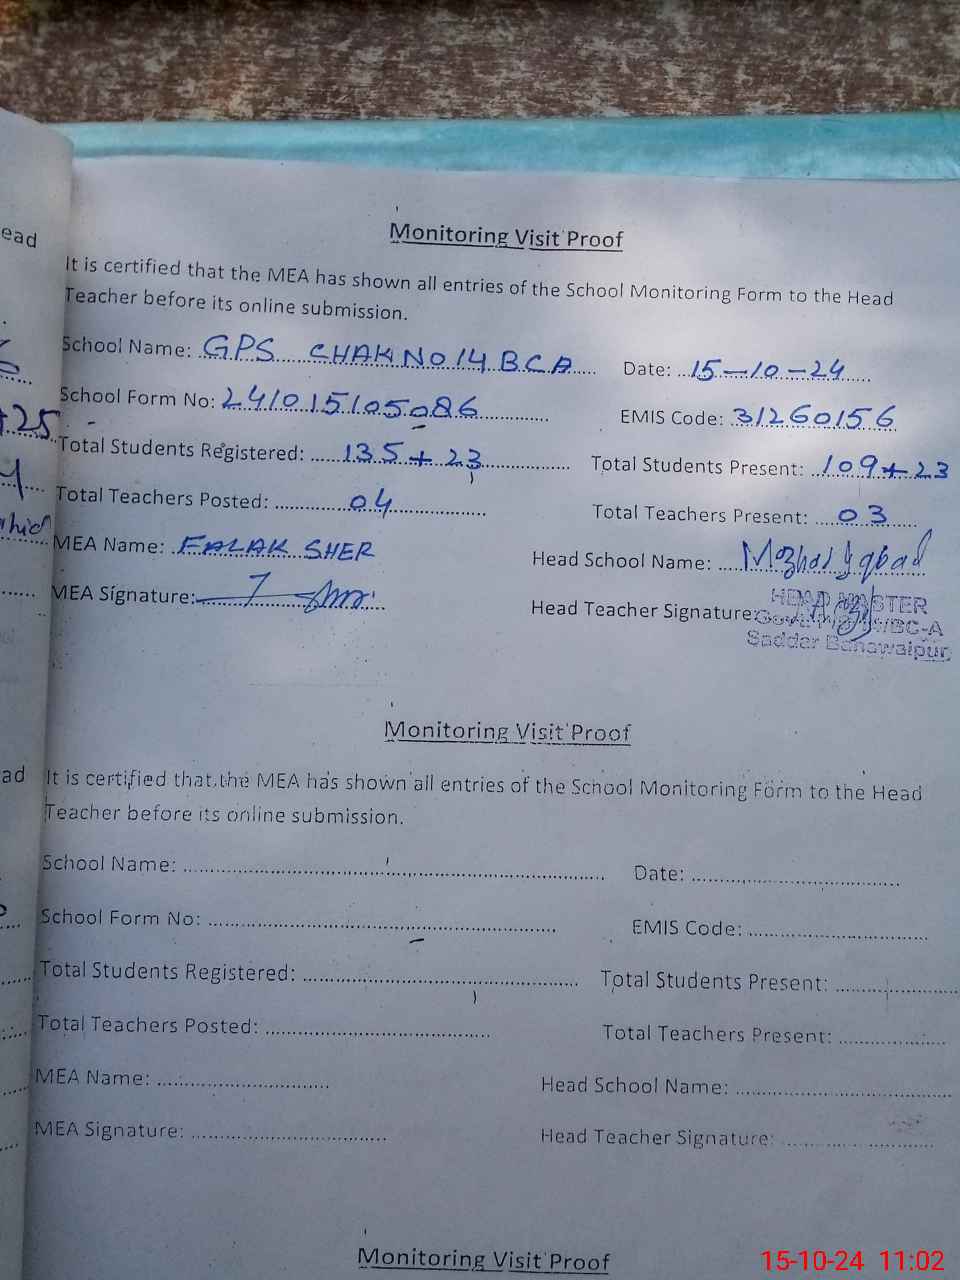 ead
Monitoring Visit Proof
It is certified that the MEA has shown all entries of the School Monitoring Form to the Head
Teacher before its online submission.
School Name: GPS CHAK NO 14 BCA Date: 15-10-24
School Form No: 241015105086 EMIS Code: 31260156
Total Students Registered: 135+23 Total Students Present: 109+23
Total Teachers Posted: 04 Total Teachers Present: 03
MEA Name: FALAK SHER Head School Name: Iqbal
MEA Signature: Head Teacher Signature:
HEAD MASTER
/BC-A
Saddar Bahawalpur
Monitoring Visit Proof
ad
It is certified that the MEA has shown all entries of the School Monitoring Form to the Head
Teacher before its online submission.
School Name: Date:
School Form No: EMIS Code:
Total Students Registered: Total Students Present:
Total Teachers Posted: Total Teachers Present:
MEA Name: Head School Name:
MEA Signature: Head Teacher Signature:
Monitoring Visit Proof
15-10-24 11:02